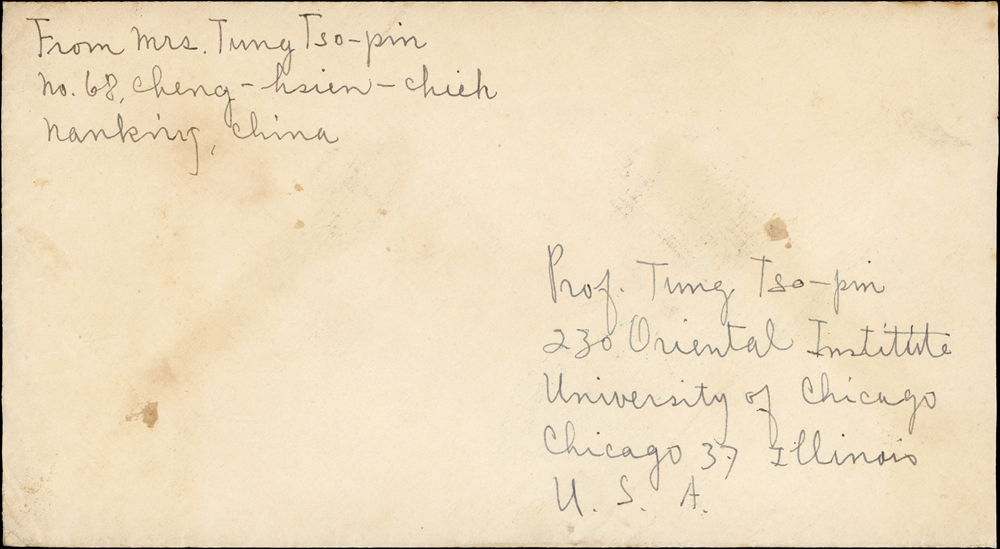 From Mrs. Tung Tso-pin
No. 68, Cheng-hsien-chieh
Nanking, China
Prof. Tung Tso-pin
230 Oriental Institute
University of Chicago
Chicago 37 Illinois
U. S. A.